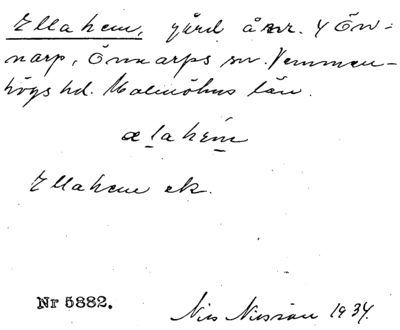 Ellahem, gård å nr. 4 Ön-
narp, Önnarps sn. Vemmen-
högs hd. Malmöhus län.
ælahem
Ellahem ek.
Nr 5882. Nils Nilsson 1934.